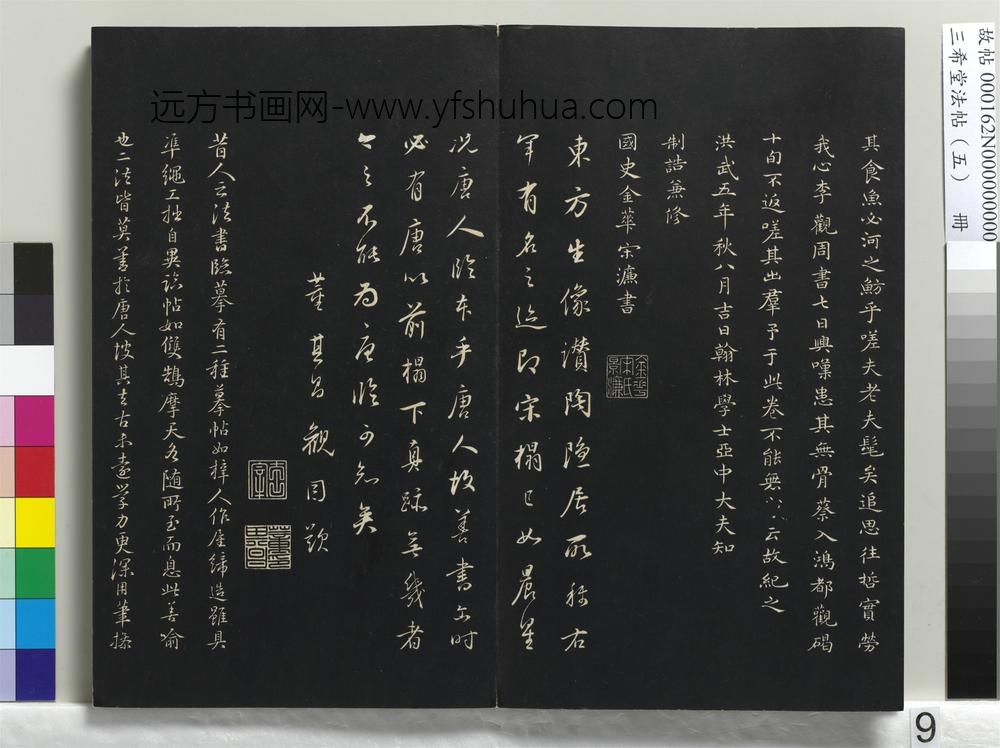 远方书画网-www.yfshuhua.com
故帖 000162N000000000
三希堂法帖（五） 冊
其食魚必河之魴乎嗟夫老夫髦矣追思往哲實勞
我心李觀周書七日興嘆患其無骨蔡入鴻都觀碣
十旬不返嗟其出羣予于此卷不能無云故紀之
洪武五年秋八月吉日翰林學士亞中大夫知
制誥兼修
國史金華宋濂書
金華宋氏景濂
東方生像讚陶隐居所稱右
軍有名之迹即宋榻已如晨星
况唐人临本乎唐人故善書尔时
必有唐以前榻下真跡無幾者
之不能为唐临可知矣
董其昌觀因題
昔人云法書臨摹有二種摹帖如梓人作屋締造雖具
準繩工拙自異臨帖如雙鵠摩天各随所至而息此善喻
也二法皆莫善於唐人故其去古未遠學力更深用筆
9